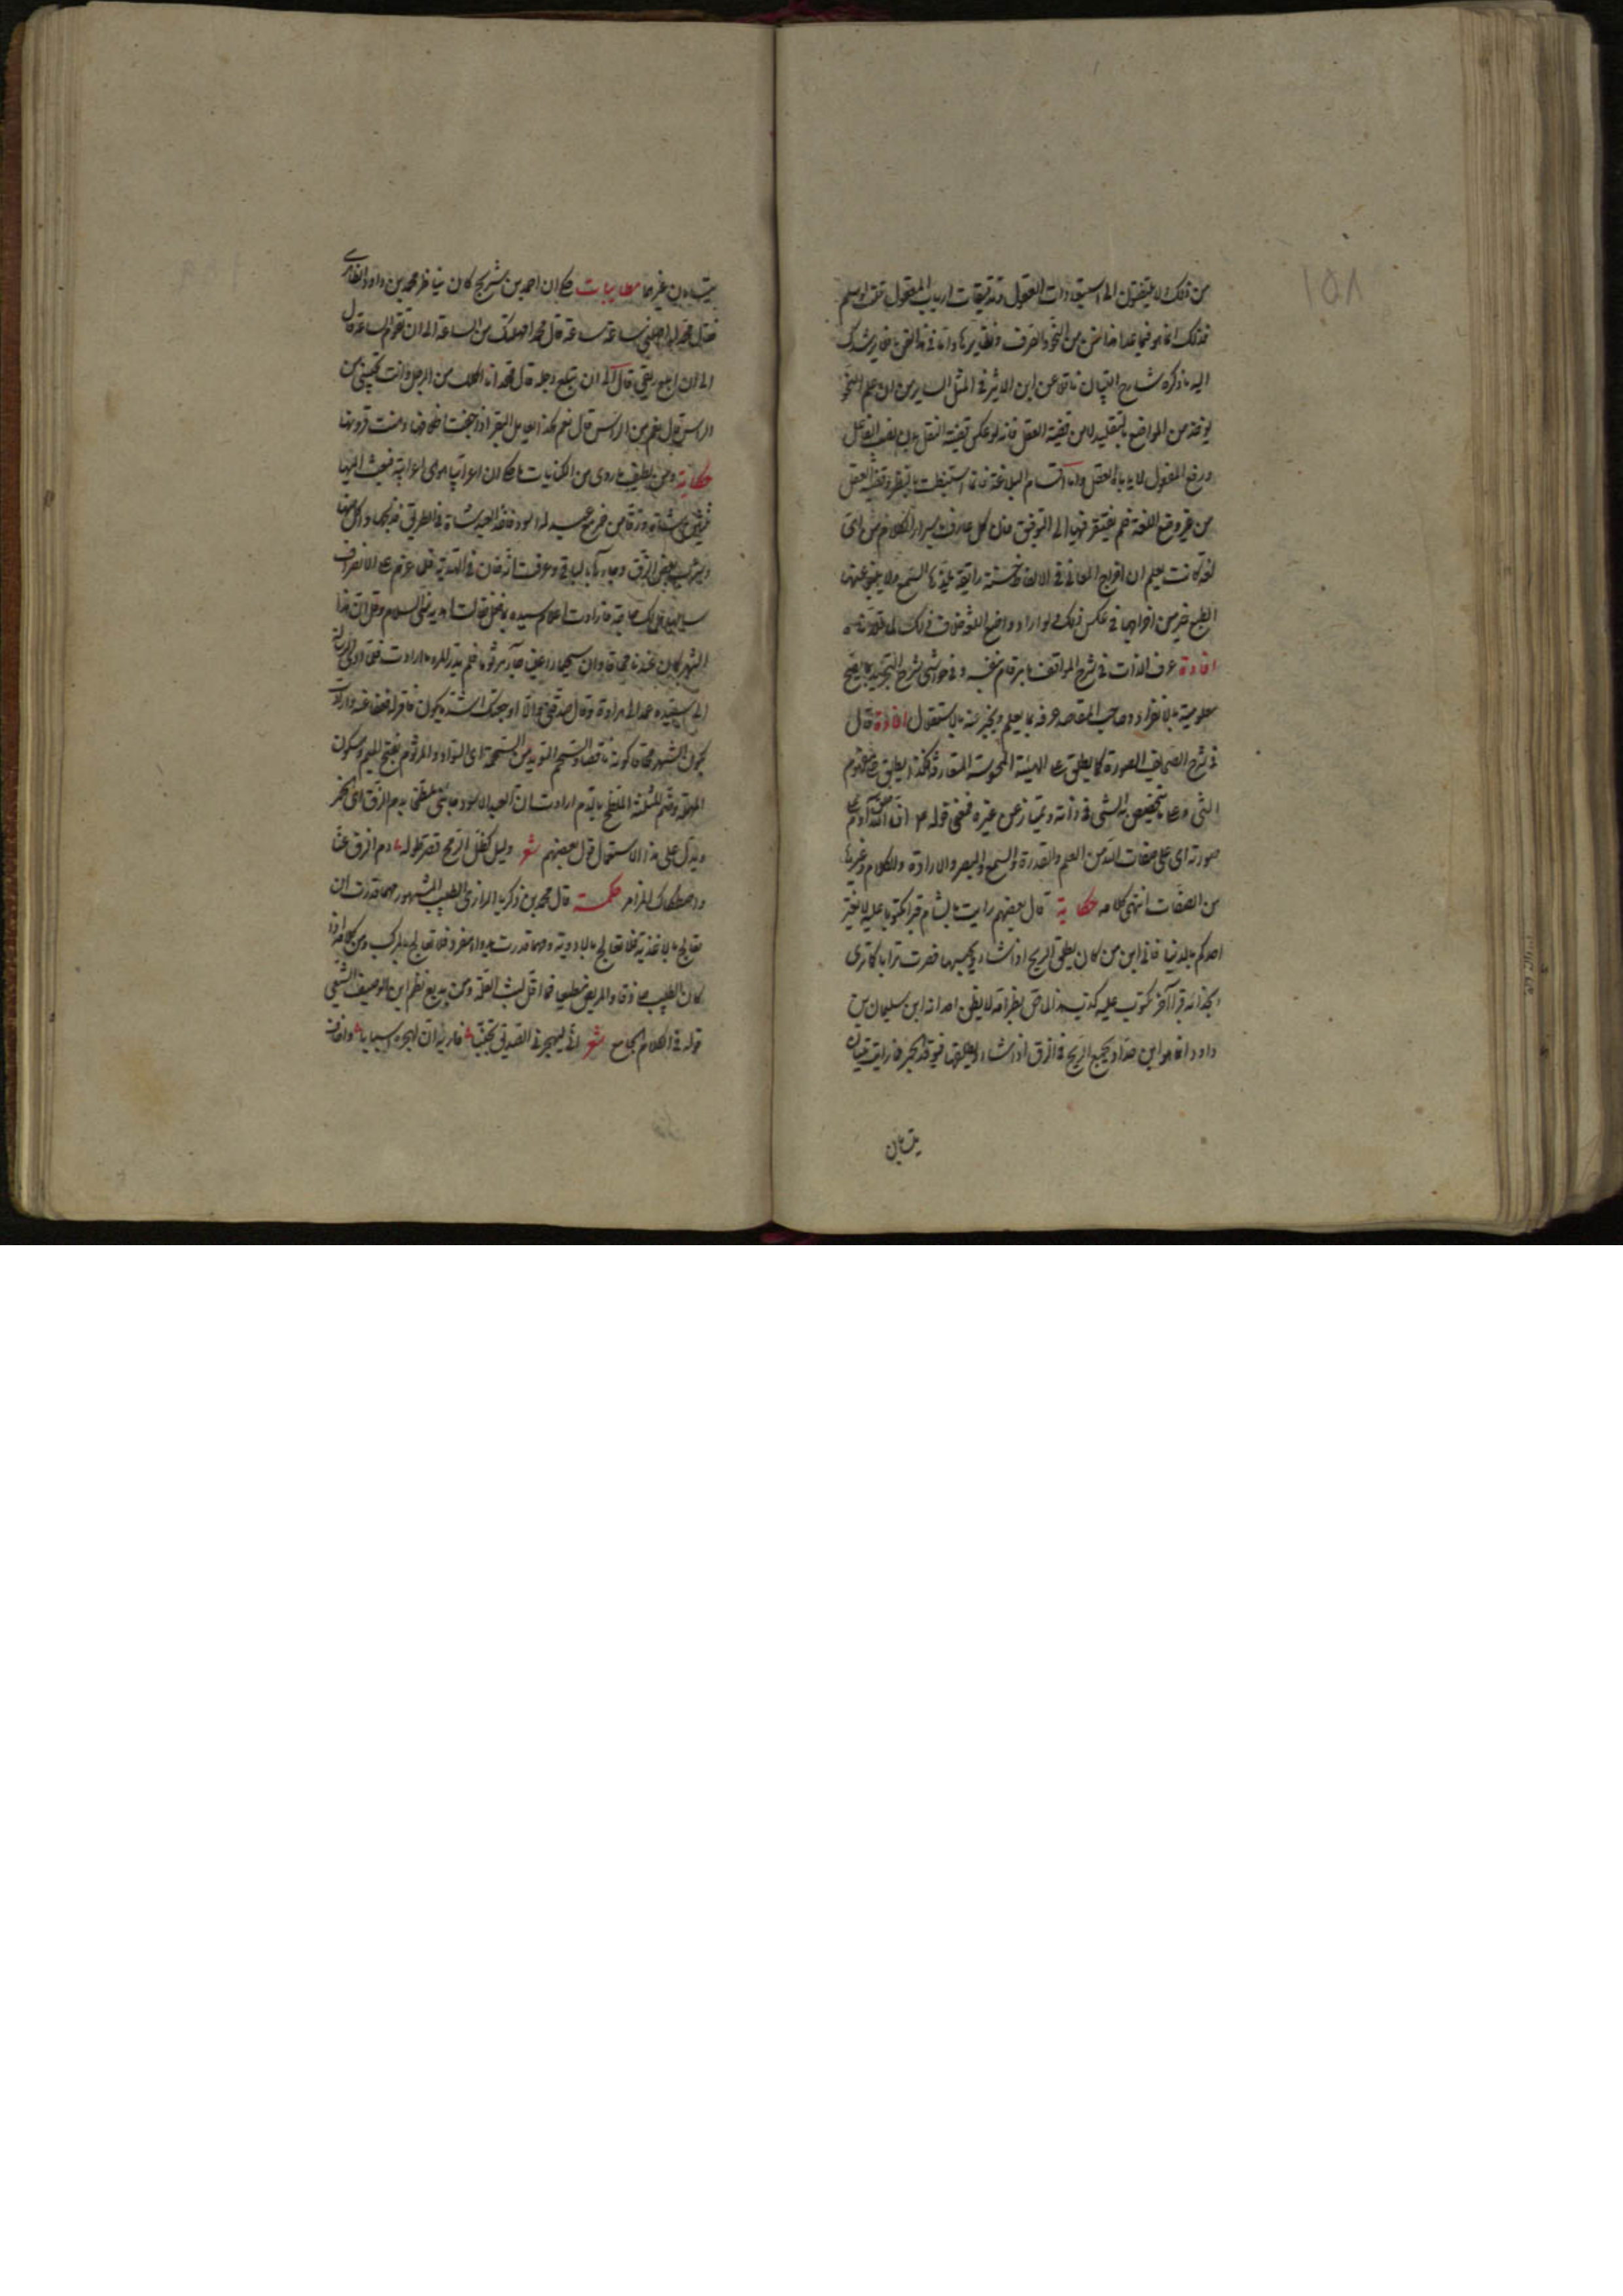 ١٥٨
من ذلك لا يلتفتون الى استبعادات العقول وتدقيقات ارباب المعقول قلت لو سلم
فذلك انما هو فيما عدا هذا الفن من النحو والصرف ونظايرها واما في هذا الفن فلا يرشدك
اليه ما ذكره شارح التبيان ناقلا عن ابن الاثير في المثل الساير من ان علم النحو
يؤخذ من المواضع بالتقليد لا من قضية العقل فانه لو عكس قضية النقل بان نصب الفاعل
ورفع المفعول لا يأباه العقل واما اقسام البلاغة فانما استنبطت بالنظر وقضية العقل
من غير وضع اللغة فلم يفتقر فيها الى التوقيف فان كل عارف باسرار الكلام من اي
لغة كانت يعلم ان اخراج المعاني في الالفاظ حسنة رايقة يلذ بها السمع ولا ينبو عنها
الطبع خير من اخراجها في عكس ذلك ولو اراد واضع اللغة خلاف ذلك لما قلدناه
افادة عرف الذات في شرح المواقف بما يقام بنفسه وفي حواشي شرح التجريد بما يصح
معلوميته بالانفراد وصاحب المقاصد عرفه بما يعلم ويخبر عنه بالاستقلال افادة قال
في شرح الصحائف الصورة كما يطلق على الهيئة المحسوسة المتعارفة كذا يطلق على مفهوم
الشي وما يتخصص به الشي في ذاته ويمتاز عن غيره فمعنى قوله ان الله خلق آدم على
صورته اي على صفات الله من العلم والقدرة والسمع والبصر والارادة والكلام وغيرها
من الصفات انتهى كلامه حكاية قال بعضهم رايت بالشام قبرا مكتوبا عليه لا يغتر
احدكم بالدنيا فاني ابن من كان يطلق الريح اذا شاء ويحبسها فصرت ترابا كما ترى
بحذائه قبرا آخر مكتوب عليه كذب الماص بظر امه لا يظن احد انه ابن سليمان بن
داود انما هو ابن حداد يجمع الريح في الزق اذا شاء ويطلقها فيوقد الجمر فما رايت قبران
يتسابان
يتسابان غيرهما مطايبات حكي ان احمد بن شريح كان يناظر محمد بن داود الظاهري
فقال محمد له امهلني ساعة قال محمد امهلتك من الساعة الى ان تقوم الساعة قال
الى ان ابلع ريقي قال الى ان تبلع دجلة قال محمد انا اكلمك من الرجل وانت تجيبني من
الرأس قال نعم من الراس قال نعم هكذا البقر اذا حفت اظلافها دهنت قرونها
حكاية ومن لطيف ما روى من الكنايات ما حكي ان اعرابيا هوى اعرابية فبعث اليها
ثلثين شاة وزقا من خمر مع عبد له اسود فاخذ العبد شاة في الطريق فذبحها واكل منها
وشرب بعض الزق وجاءها بالباقي وعرفت انه خان في الهدية فلما عزم على الانصراف
سالها هل لك حاجة فارادت اعلام سيده بما فعل فقالت اقره مني السلام وقل له ان هذا
الشهر كان عندنا محاقا وان سحيما راعي غنمنا جاء مرثوما فلم يدر العبد ما ارادت فلما ادى الرسالة
الى سيده عمد الى هراوة وقال اصدقني والا اوجعتك اشد ما يكون فاقر له فعفا عنه وارادت
بكون الشهر محاقا كونه ناقصا والسحيم التصغير من السحمة اي السواد والمرثوم بفتح الميم وسكون
المهملة وضم المثلثة الملطخ بالدم ارادت ان العبد الاسود جائني ملطخا بدم الزق اي الخمر
ويدل على هذا الاستعمال قول بعضهم شعر وليل كظل الرمح قصر طوله دم الزق عنا
واصطكاك المزاهر حكمة قال محمد بن زكريا الرازي الطبيب المشهور مهما قدرت ان
تعالج بالاغذية فلا تعالج بالادوية ومهما قدرت بدواء مفرد فلا تعالج بالمركب ومن كلامه اذا
كان الطبيب حاذقا والمريض مطيعا فما اقل لبث العلة ومن بديع نظم ابن الوصيف الشيعي
قوله في الكلام الجامع شعر اني ليهجرني الصديق تجنبا فاريه ان لهجره اسبابا واخاف